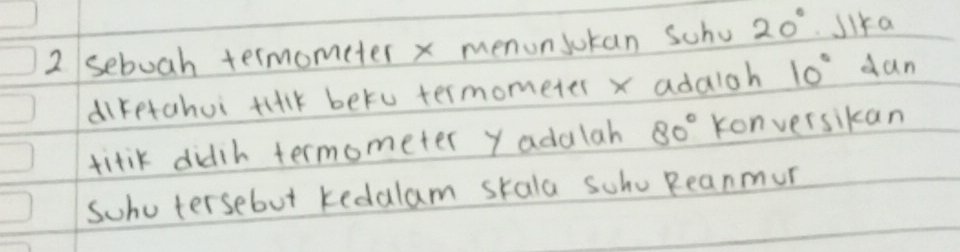 2 Sebuah termometer x menunjukan suhu 20°. Jika
diketahui titik beku termometer x adalah 10° dan
titik didih termometer y adalah 80° konversikan
suhu tersebut kedalam skala suhu Reanmur